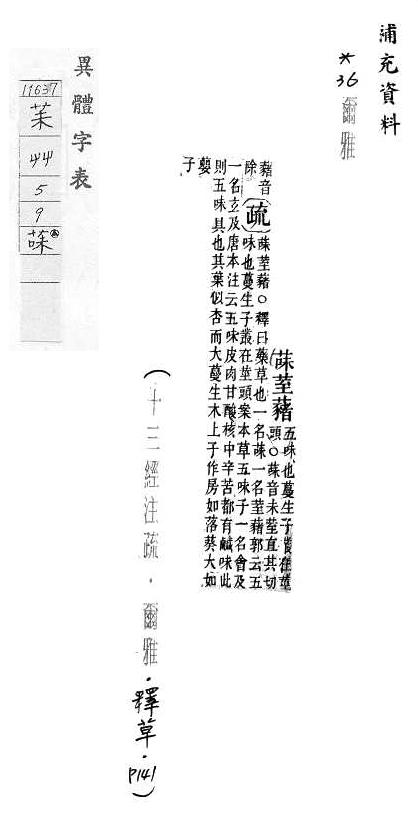 補充資料
*36 爾雅
菋荎藸五味也蔓生子叢在莖
頭○菋音未荎直其切
藸音
除 疏 菋荎藸○釋曰藥草也一名菋一名荎藸郭云五
味也蔓生子叢在莖頭案本草五味子一名會及
一名玄及唐本注云五味皮肉甘酸核中辛苦都有鹹味此
則五味具也其葉似杏而大蔓生木上子作房如落葵大如
蘡
子
(十三經注疏·爾雅·釋草·P141)
異體字表
11637
茉
44
5
9
菋